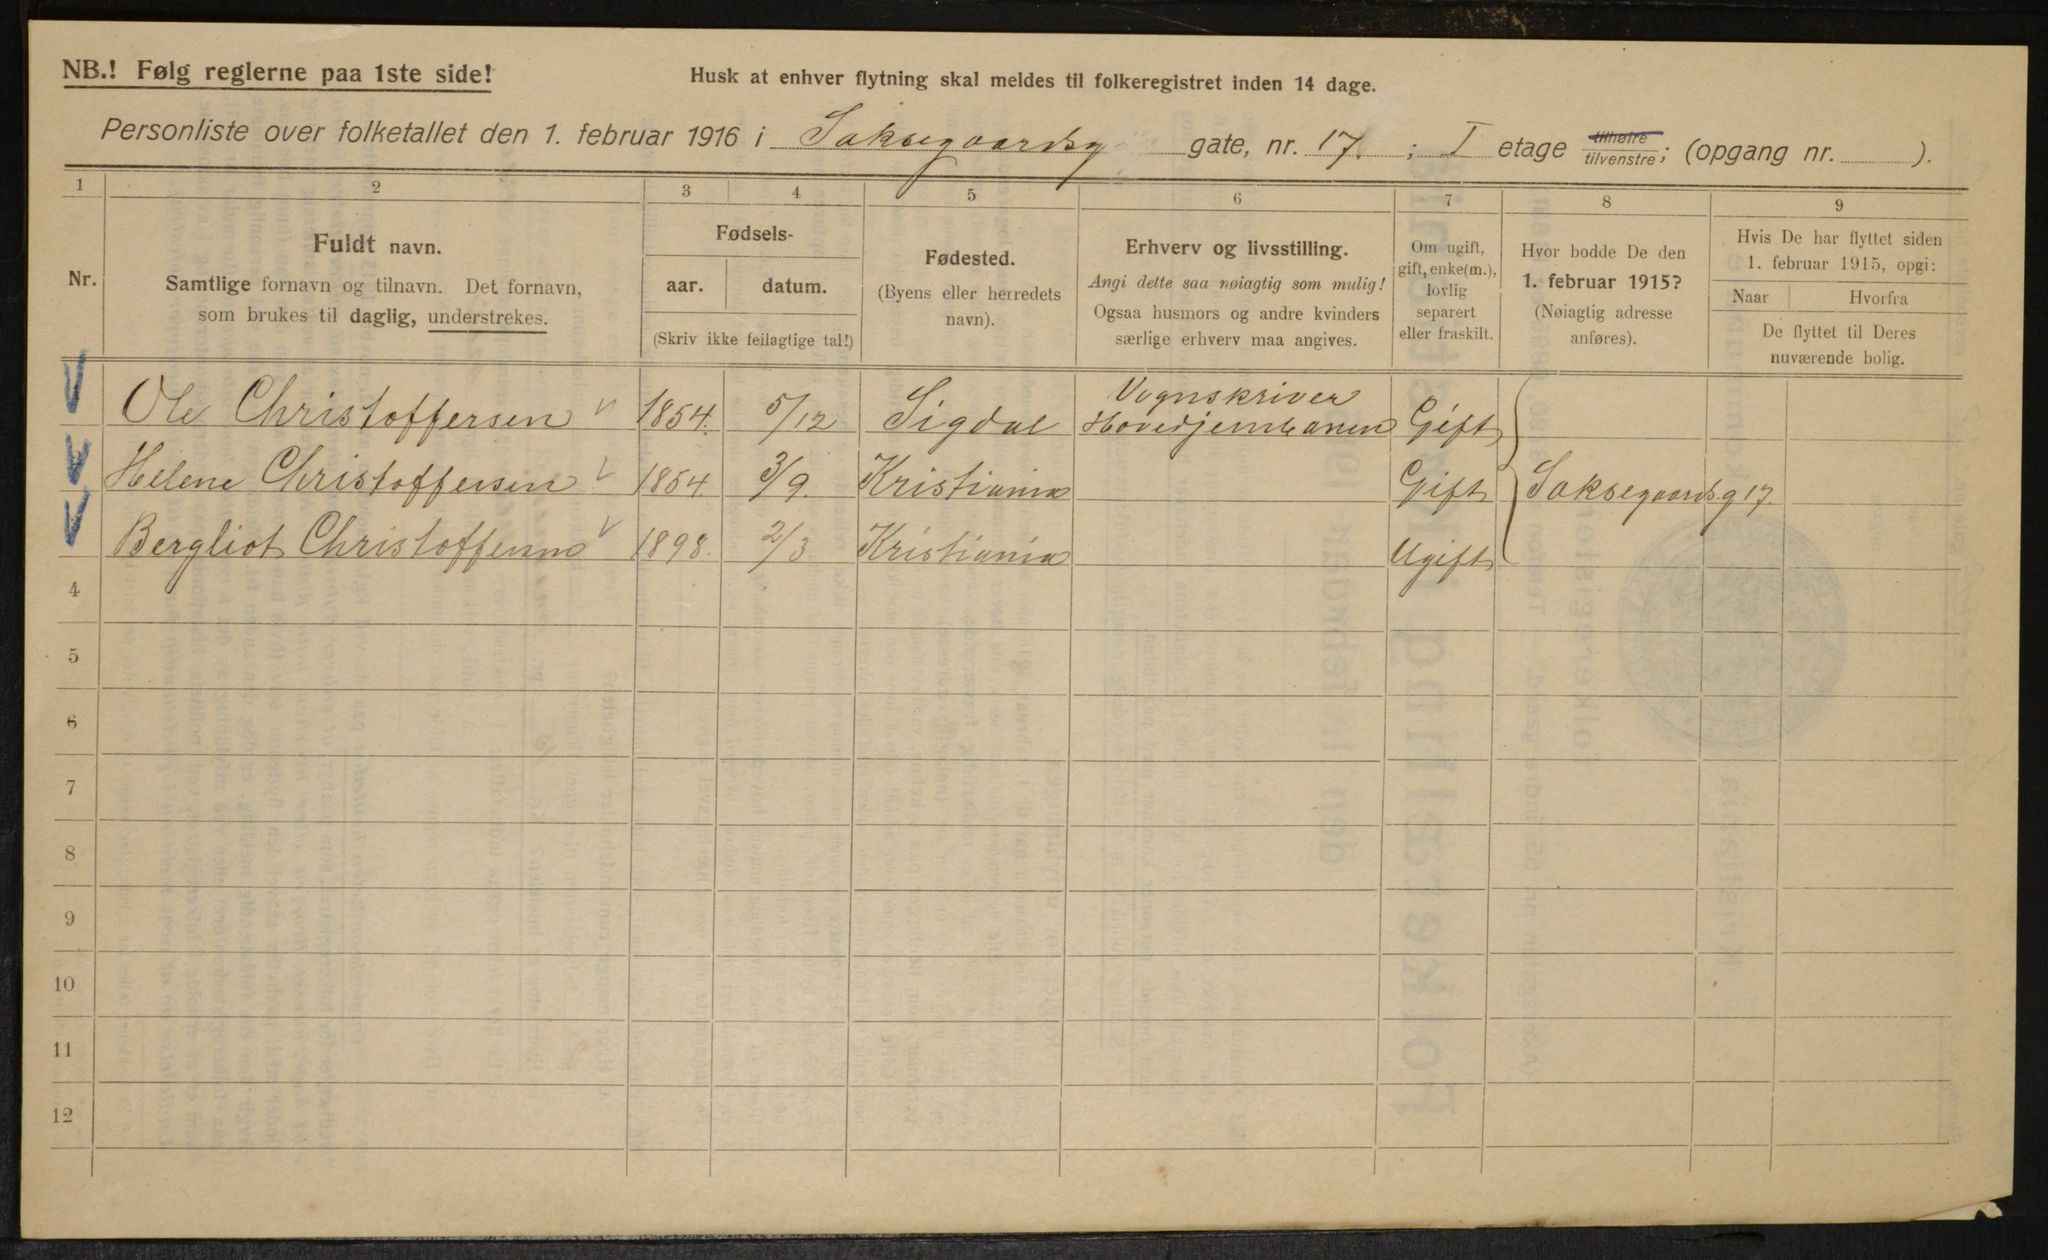 NB.! Følg reglerne paa 1ste side!
Husk at enhver flytning skal meldes til folkeregistret inden 14 dage.
Personliste over folketallet den 1. februar 1916 i Saksegaardsg gate, nr. 17. ; I etage tilhøire tilvenstre; (opgang nr. ).
1 2 3 4 5 6 7 8 9
Nr.
Fuldt navn.
Samtlige fornavn og tilnavn. Det fornavn,
som brukes til daglig, understrekes.
Fødsels-
aar. datum.
(Skriv ikke feilagtige tal!)
Fødested.
(Byens eller herredets
navn).
Erhverv og livsstilling.
Angi dette saa nøiagtig som mulig!
Ogsaa husmors og andre kvinders
særlige erhverv maa angives.
Om ugift,
gift, enke(m.),
lovlig
separert
eller fraskilt.
Hvor bodde De den
1. februar 1915?
(Nøiagtig adresse
anføres).
Hvis De har flyttet siden
1. februar 1915, opgi:
Naar Hvorfra
De flyttet til Deres
nuværende bolig.
Ole Christoffersen 1854. 5/12 Sigdal Vognskriver Hovedjernbanen Gift
Helene Christoffersen 1854. 3/9. Kristiania Gift Saksegaardsg 17.
Bergliot Christoffersen 1898. 2/3 Kristiania Ugift
4
5
6
7
8
9
10
11
12